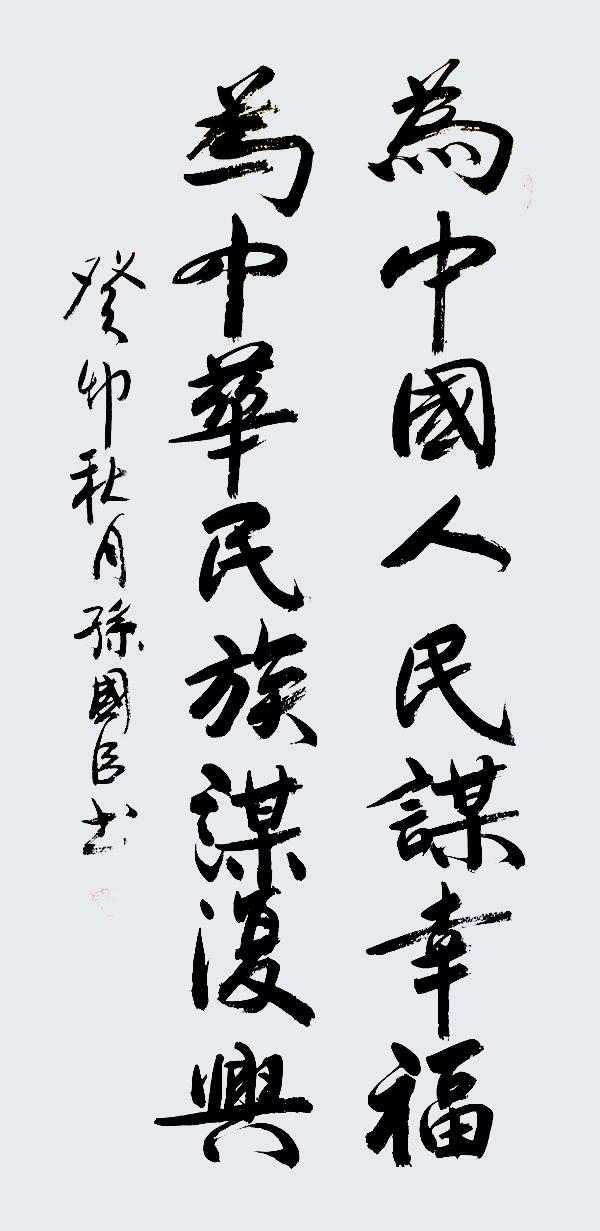 為中國人民謀幸福
為中華民族謀復興
癸卯秋月孫國臣书